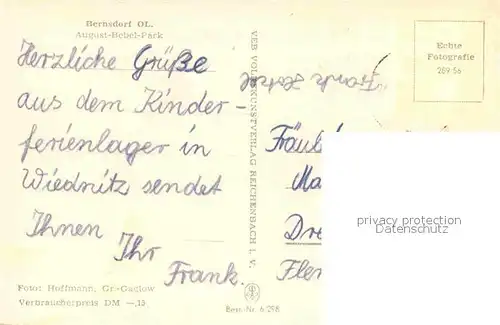 Bernsdorf OL.
August-Bebel-Park
Herzliche Grüße
aus dem Kinder-
ferienlager in
Wiednitz sendet
Ihnen
Ihr
Frank.
Foto: Hoffmann, Gr.-Gaglow
Verbraucherpreis DM -,15
VEB VOLKSKUNSTVERLAG REICHENBACH I. V.
Best.-Nr. 6 298
Echte
Fotografie
289 56
Frank
Fräul
Ma
Dre
Fler
privacy protection
Datenschutz